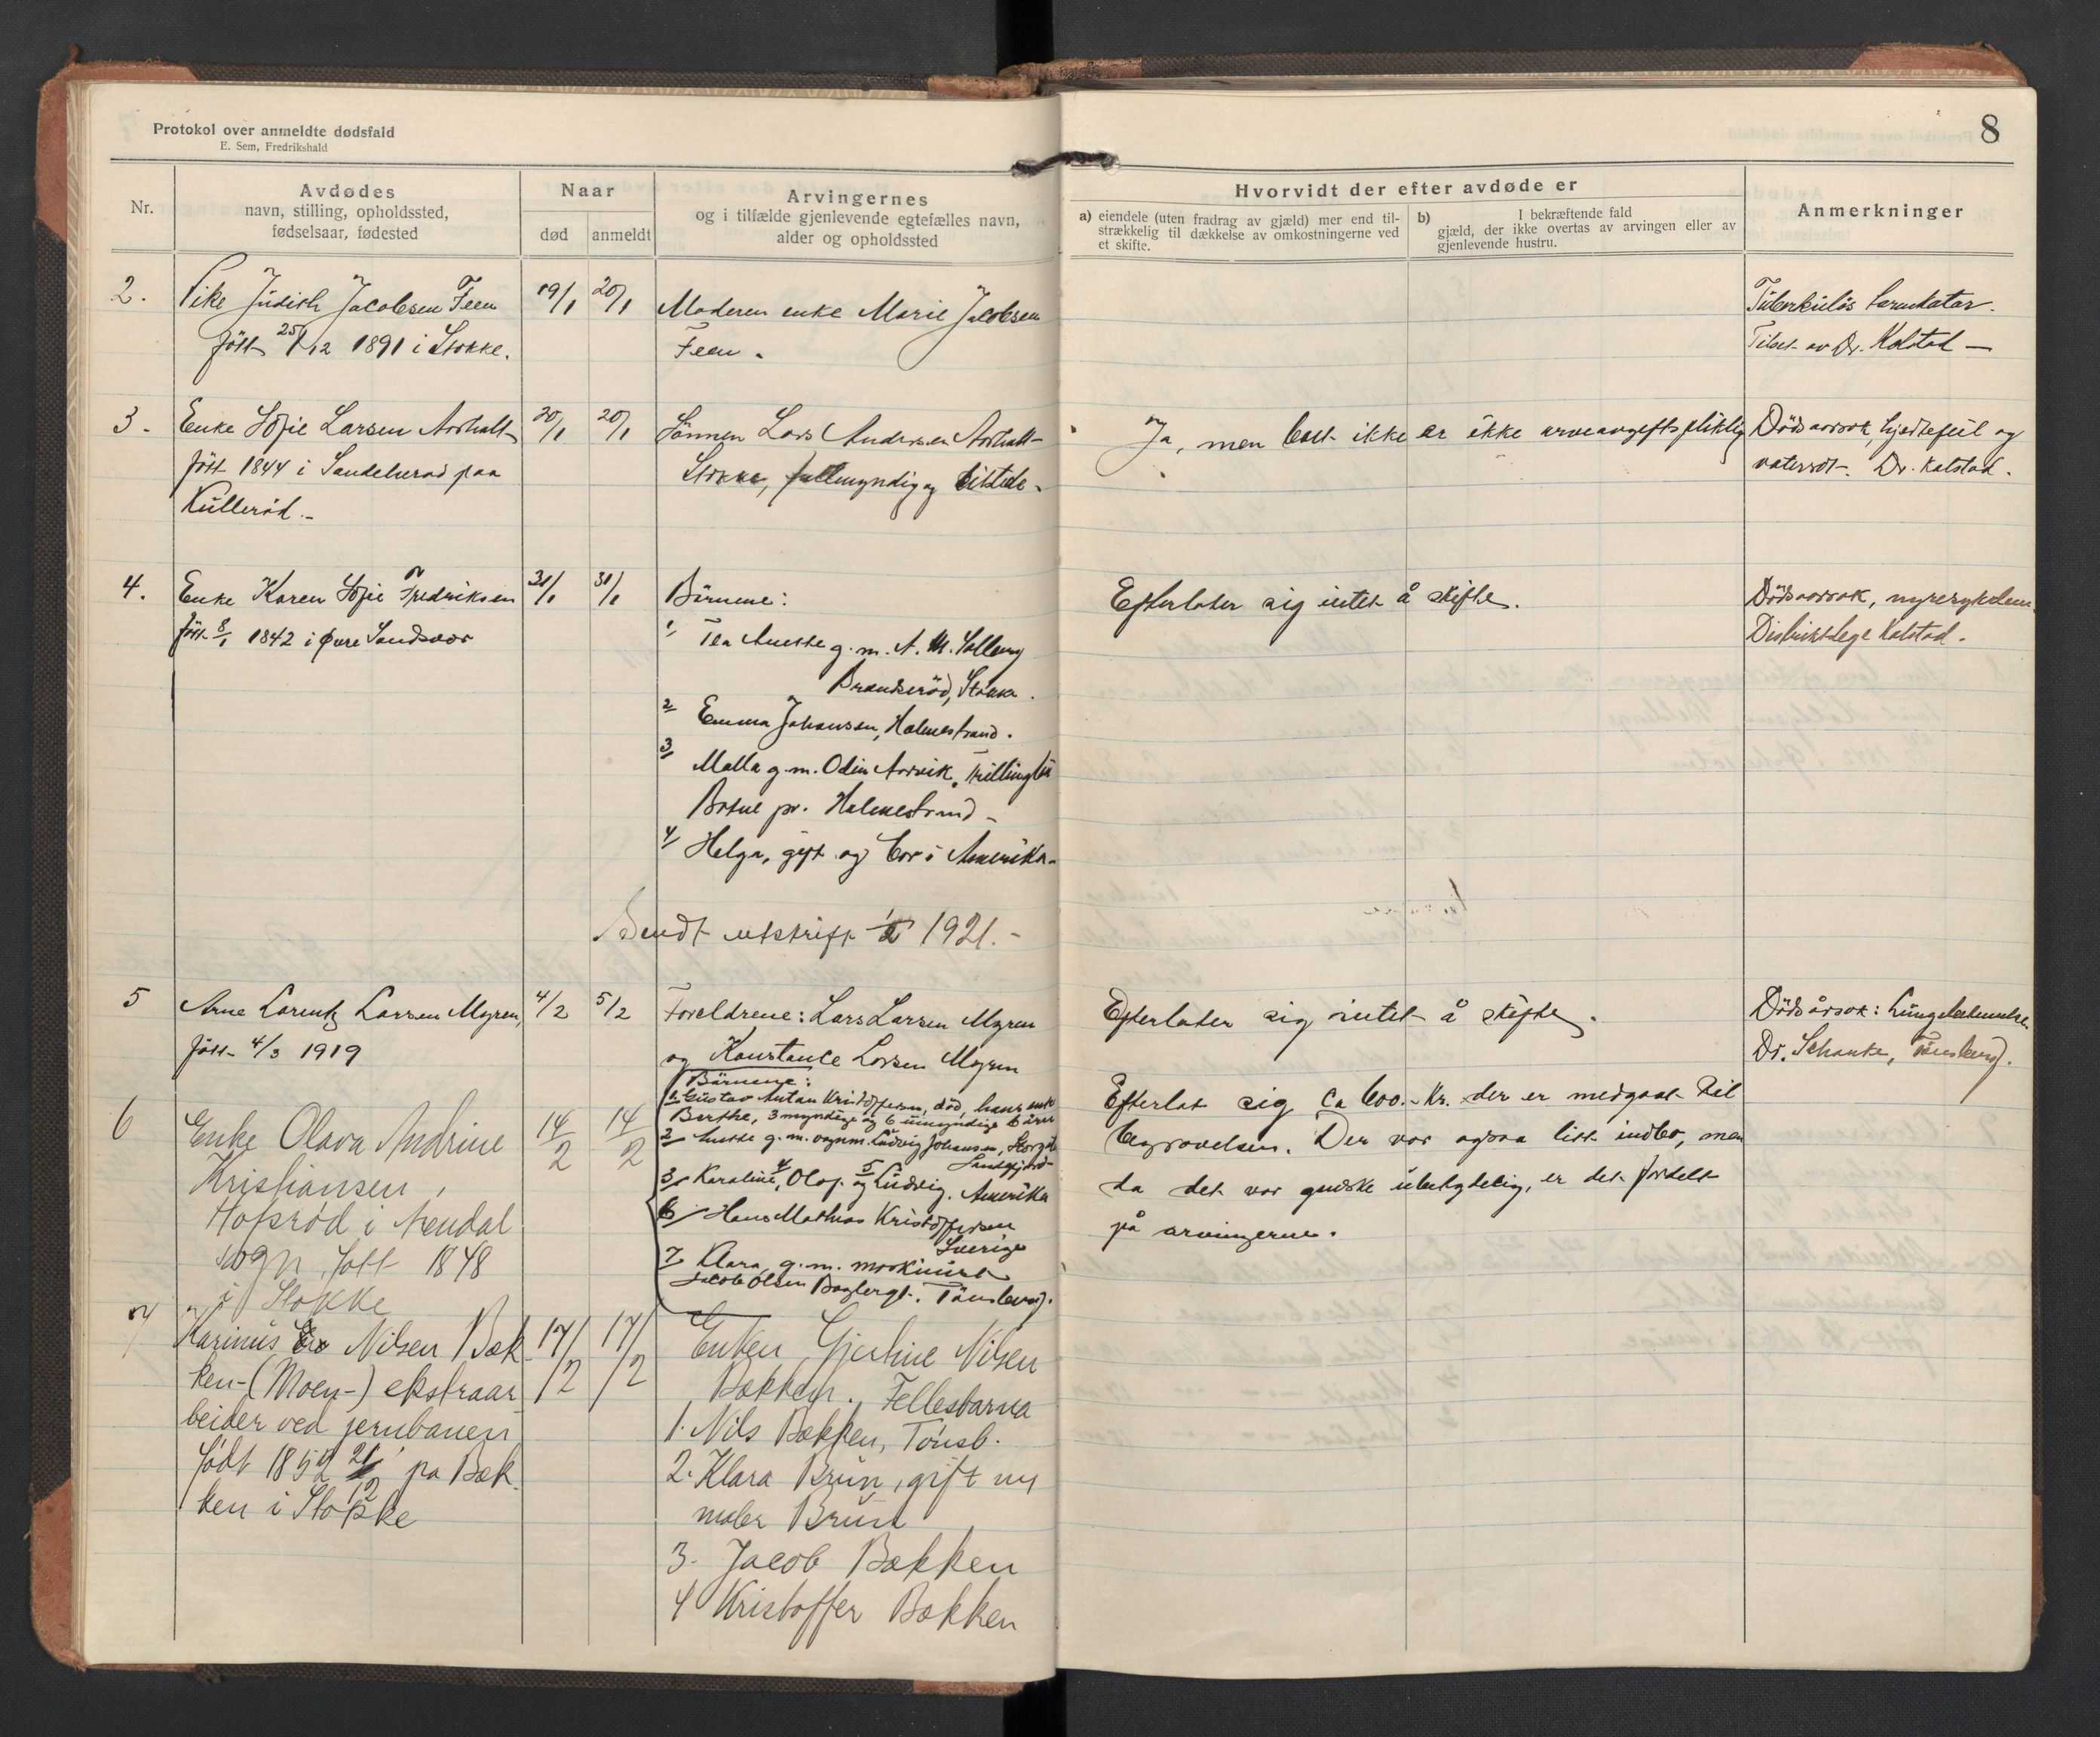 Protokol over anmeldte dødsfald
E. Sem, Fredrikshald
8
Nr.
Avdødes
navn, stilling, opholdssted,
fødselsaar, fødested
Naar
død
anmeldt
Arvingernes
og i tilfælde gjenlevende egtefælles navn,
alder og opholdssted
Hvorvidt der efter avdøde er
a) eiendele (uten fradrag av gjæld) mer end til-
strækkelig til dækkelse av omkostningerne ved
et skifte.
b) I bekræftende fald
gjæld, der ikke overtas av arvingen eller av
gjenlevende hustru.
Anmerkninger
2.
Pike Judith Jacobsen Feen
født 25/12 1891 i Stokke.
19/1
20/1
Moderen enke Marie Jacobsen
Feen.
Tuberkuløs
av Dr. Kolstad —
3.
Enke Sofie Larsen
født 1844 i Sandeherad paa
Kullerød.-
20/1
20/1
Sønnen Lars Andersen
Stokke, fullmyndig og tilstede.
Ja, men ikke er ikke arveavgiftspliktig
Dødsaarsak, hjertefeil og
vatersot. Dr. Kolstad.
4.
Enke Karen Sofie Fredriksen
født 8/1 1842 i øvre Sandsvær
31/1
31/1
Børnene:
1/ Tea Anette g.m. A. M. Solberg
Brunserød, Stokke.
2/ Emma Johansen, Holmestrand.
3/ Malla g.m. Odin Aarvik,
Botne pr. Holmestrand -
4/ Helga, gift og bor i Amerika.
Sendt utskrift 1/2 1921.-
Efterlater sig intet å skifte.
Dødsaarsak, nyresykdom
Distriktslege Kolstad.
5
Arne Lorentz Larsen Myren,
født 4/3 1919
4/2
5/2
Foreldrene: Lars Larsen Myren
og Konstance Larsen Myren
Efterlater sig intet å skifte.
Dødsårsak: Lungebetennelse.
Dr. Schanke, Tønsberg.
6
Enke Olava Andrine
Kristiansen,
Hofsrød i Arendal
sogn, født 1848
i Stokke
14/2
14/2
Børnene:
1. Gustav Antan Kristoffersen, død, hans enke
Berthe, 3 myndige og 6 umyndige
2/ Anette g.m. vognm. Ludvig Johansen,
Sandefjord-
3/ Karoline, 4 Olaf og 5 Ludvig, Amerika
6/ Hans Mathias Kristoffersen
Sverige
7/ Klara, g.m. maskinist
Jacob Olsen Tønsberg.
Efterlot sig ca 600.- Kr. der er medgaat til
begravelsen. Der var ogsaa litt indbo, men
da det var ganske ubetydelig, er det fordelt
på arvingerne.
7
Karinus Nilsen Bæk
ken-(Moen-) ekstraar
beider ved jernbanen
født 1852 21/12 pa Bæk
ken i Stokke
17/2
17/2
Enken Gjertine Nilsen
Bækken. Fellesbarna
1. Nils Bækken, Tønsb.
2. Klara Brun, gift m
maler Brun
3. Jacob Bækken
4 Kristoffer Bækken